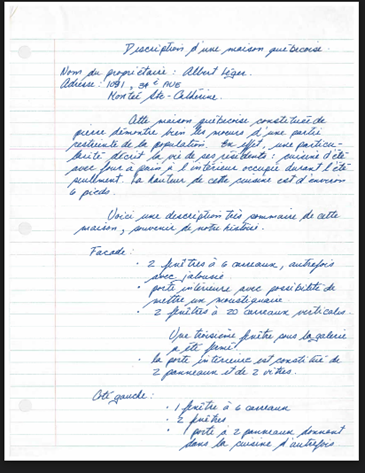 Description d'une maison québécoise.
Nom du propriétaire : Albert Léger.
Adresse : 1091, 3e AVE
Montée Ste-Catherine.
Cette maison québécoise constituée de
pierre démontre bien les moeurs d'une partie
restreinte de la population. En effet, une particu-
larité décrit la vie de ses résidents : cuisine d'été
avec four à pain à l'intérieur occupée durant l'été
seulement. La hauteur de cette cuisine est d'environ
6 pieds.
Voici une description très sommaire de cette
maison, souvenir de notre histoire.
Facade :
· 2 fenêtres à 6 carreaux, autrefois
avec jalousie
· porte intérieure avec possibilité de
mettre un moustiquaire.
· 2 fenêtres à 20 carreaux verticales.
Une troisième fenêtre sous la galerie
a été fermé
· la porte intérieure est constitué de
2 panneaux et de 2 vitres.
Côté gauche :
· 1 fenêtre à 6 carreaux
· 2 fenêtres
· 1 porte à 2 panneaux donnant
dans la cuisine d'autrefois